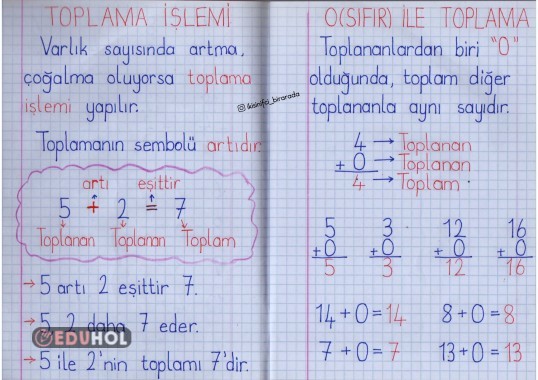 TOPLAMA İŞLEMİ
Varlık sayısında artma,
çoğalma oluyorsa toplama
işlemi yapılır.
Toplamanın sembolü artıdır
artı eşittir
5 + 2 = 7
Toplanan Toplanan Toplam
→5 artı 2 eşittir 7.
→5 2 daha 7 eder.
→5 ile 2'nin toplamı 7'dir.
EDUHOL
ikisinifici_birarada
O(SIFIR) İLE TOPLAMA
Toplananlardan biri "0"
olduğunda, toplam diğer
toplananla aynı sayıdır.
4 → Toplanan
+ 0 → Toplanan
4 → Toplam
5 3 12 16
+0 +0 +0 +0
5 3 12 16
14+0=14 8+0=8
7+0=7 13+0=13